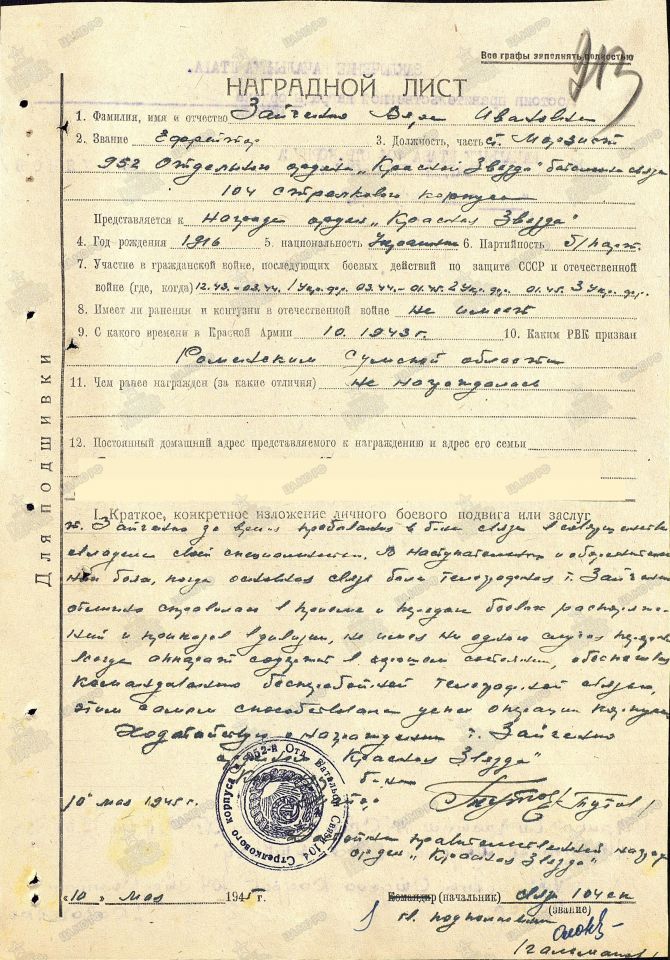 Все графы заполнять полностью
213
НАГРАДНОЙ ЛИСТ
1. Фамилия, имя и отчество Зайченко Вера Ивановна
2. Звание Ефрейтор 3. Должность, часть ст. Морзист
952 Отдельного ордена „Красной Звезды" батальона связи
104 стрелкового корпуса
Представляется к награде орден „Красная Звезда"
4. Год рождения 1916 5. национальность Украинка 6. Партийность б/парт.
7. Участие в гражданской войне, последующих боевых действий по защите СССР и отечественной
войне (где, когда) 12.43-03.44. 1 Укр. фр. 03.44.-01.45. 2 Укр. фр. 01.45. 3 Укр. фр.
8. Имеет ли ранения и контузии в отечественной войне не имеет
9. С какого времени в Красной Армии 10. 1943 г. 10. Каким РВК призван
Роменским Сумской области
11. Чем ранее награжден (за какие отличия) не награждалась
12. Постоянный домашний адрес представляемого к награждению и адрес его семьи
Для подшивки
I. Краткое, конкретное изложение личного боевого подвига или заслуг
т. Зайченко за время пребывания в б-не связи в совершенстве
овладела своей специальностью. В наступательных и
боях, когда основная связь была телеграфная т. Зайченко
отлично справилась в приеме и передаче боевых распоряже-
ний и приказов в дивизии, не имея ни одного случая
всегда аппарат содержит в хорошем состоянии,
командованию бесперебойной телеграфной связью,
этим самым способствовала операции корпуса
Ходатайствую о награждении т. Зайченко
орденом „Красная Звезда"
952-й Отд. Батальон Связи 104 Стрелкового корпуса
10 мая 1945 г. /Тутов/
правительственной награды
орден „Красная Звезда"
„10" мая 1945 г. Командир (начальник) связи 104 ск
(звание)
гв. подполковник